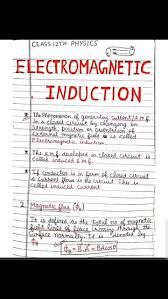 CLASS:12TH PHYSICS
ELECTROMAGNETIC
INDUCTION
The Phenomenon of generating current/e.m.f.
in a closed circuit by changing in
strength, position or orientation of
external magnetic field is called
Electromagnetic induction.
The e.m.f developed in closed circuit is
called induced e.m.f.
If conductor is in form of closed circuit
a current flows in the circuit. This is
called induced current.
2. Magnetic flux (ϕB)
It is defined as the total no. of magnetic
field lines of force crossing through the
surface normally. It is denoted by
ϕB
ϕB = B.A = BAcosθ